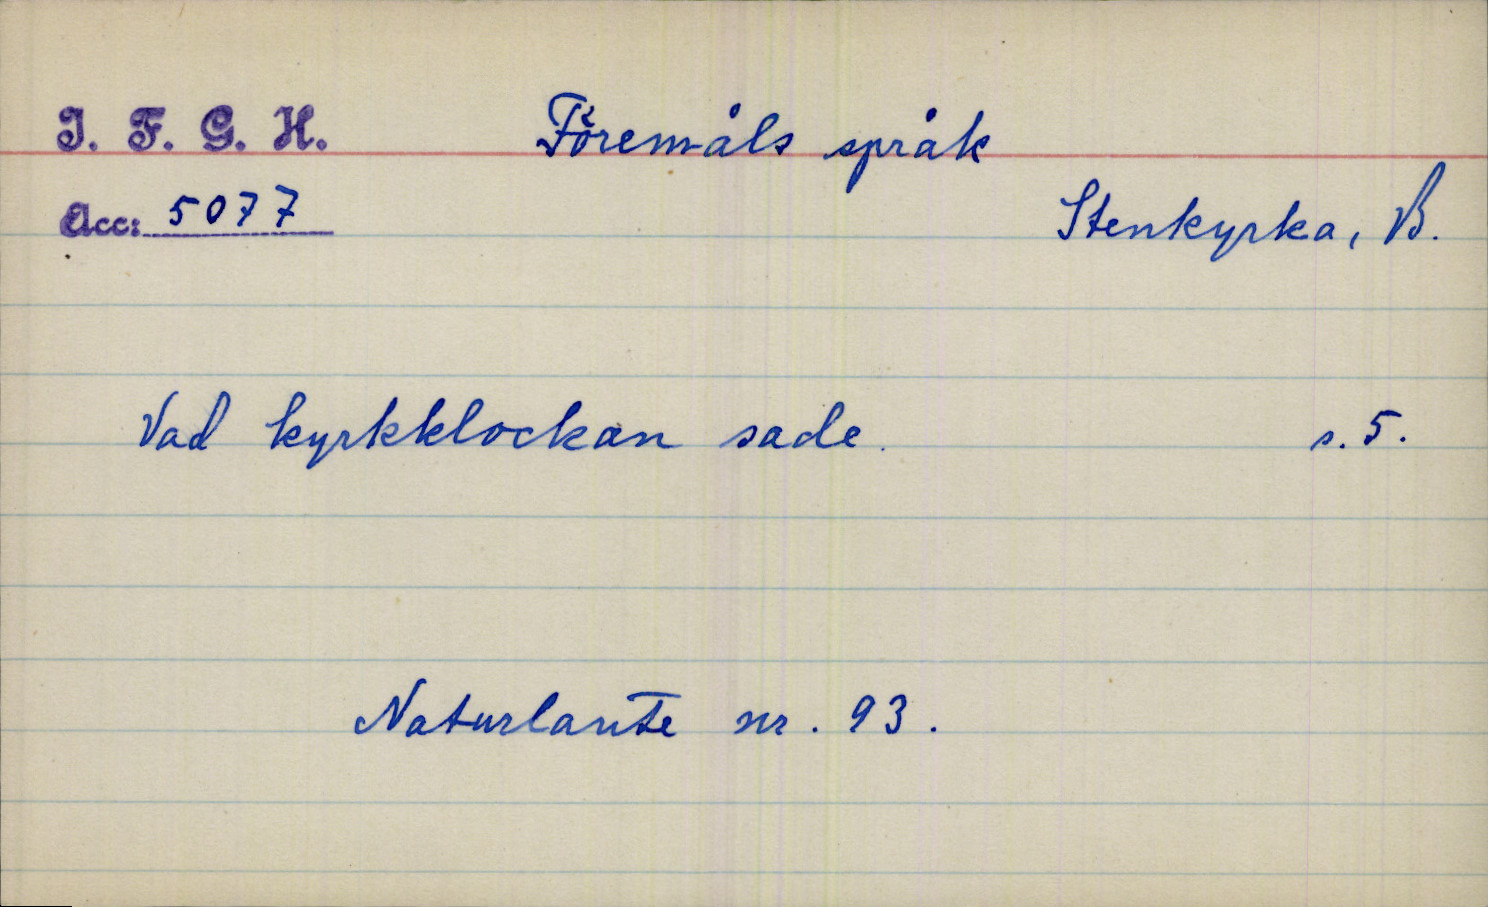 I. F. G. H.
Föremåls språk
Acc: 5077
Stenkyrka, B.
Vad kyrkklockan sade. s. 5.
Naturlaute nr. 93.